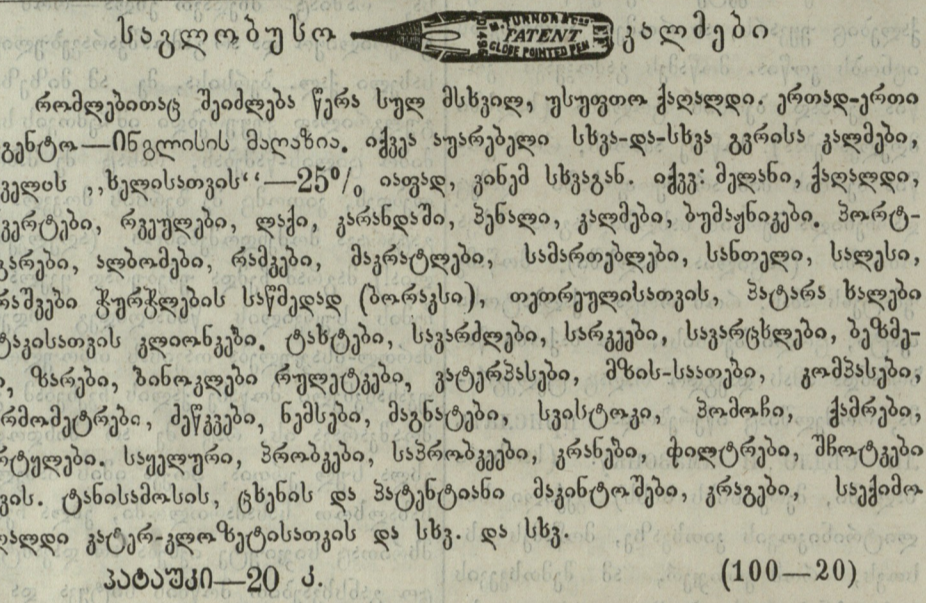 საგლობუსო TURNOR & Co PATENT GLOBE POINTED PEN კალმები
რომლებითაც შეიძლება წერა სულ მსხვილ, უსუფთო ქაღალდი. ერთად-ერთი
გენტო—ინგლისის მაღაზია. იქვეა აუარებელი სხვა-და-სხვა გვრისა კალმები,
ველის ,,ხელისათვის“—25% იაფად, ვინემ სხვაგან. იქვვ: მელანი, ქაღალდი,
ვერტები, რვეულები, ლაქი, კარანდაში, პენალი, კალმები, ბუმაჟნიკები. პორტ-
გარები, ალბომები, რამკები, მაკრატლები, სამართებლები, სანთელი, სალესი,
რაშვები ჭურჭლების საწმედად (ბორაკსი), თეთრეულისათვის, პატარა ხალები
ტაკისათვის კლიონკები. ტახტები, სავარძლები, სარკეები, სავარცხლები, ბეზმე-
ი, ზარები, ბინოკლები რულეტკები, ვატერპასები, მზის-საათები, კომპასები,
რმომეტრები, ძეწკვები, ნემსები, მაგნატები. სვისტოკი, პომოჩი, ქამრები,
რტულები. საყელური, პრობკები, საპრობკეები, კრანები, ფილტრები, შჩოტკები
ვის. ტანისამოსის, ცხენის და პატენტიანი მაკინტოშები, კრაგები, საექიმო
ღალდი კატერ-კლოზეტისათკის და სხვ. და სხვ.
პატაუკი—20 კ. (100—20)